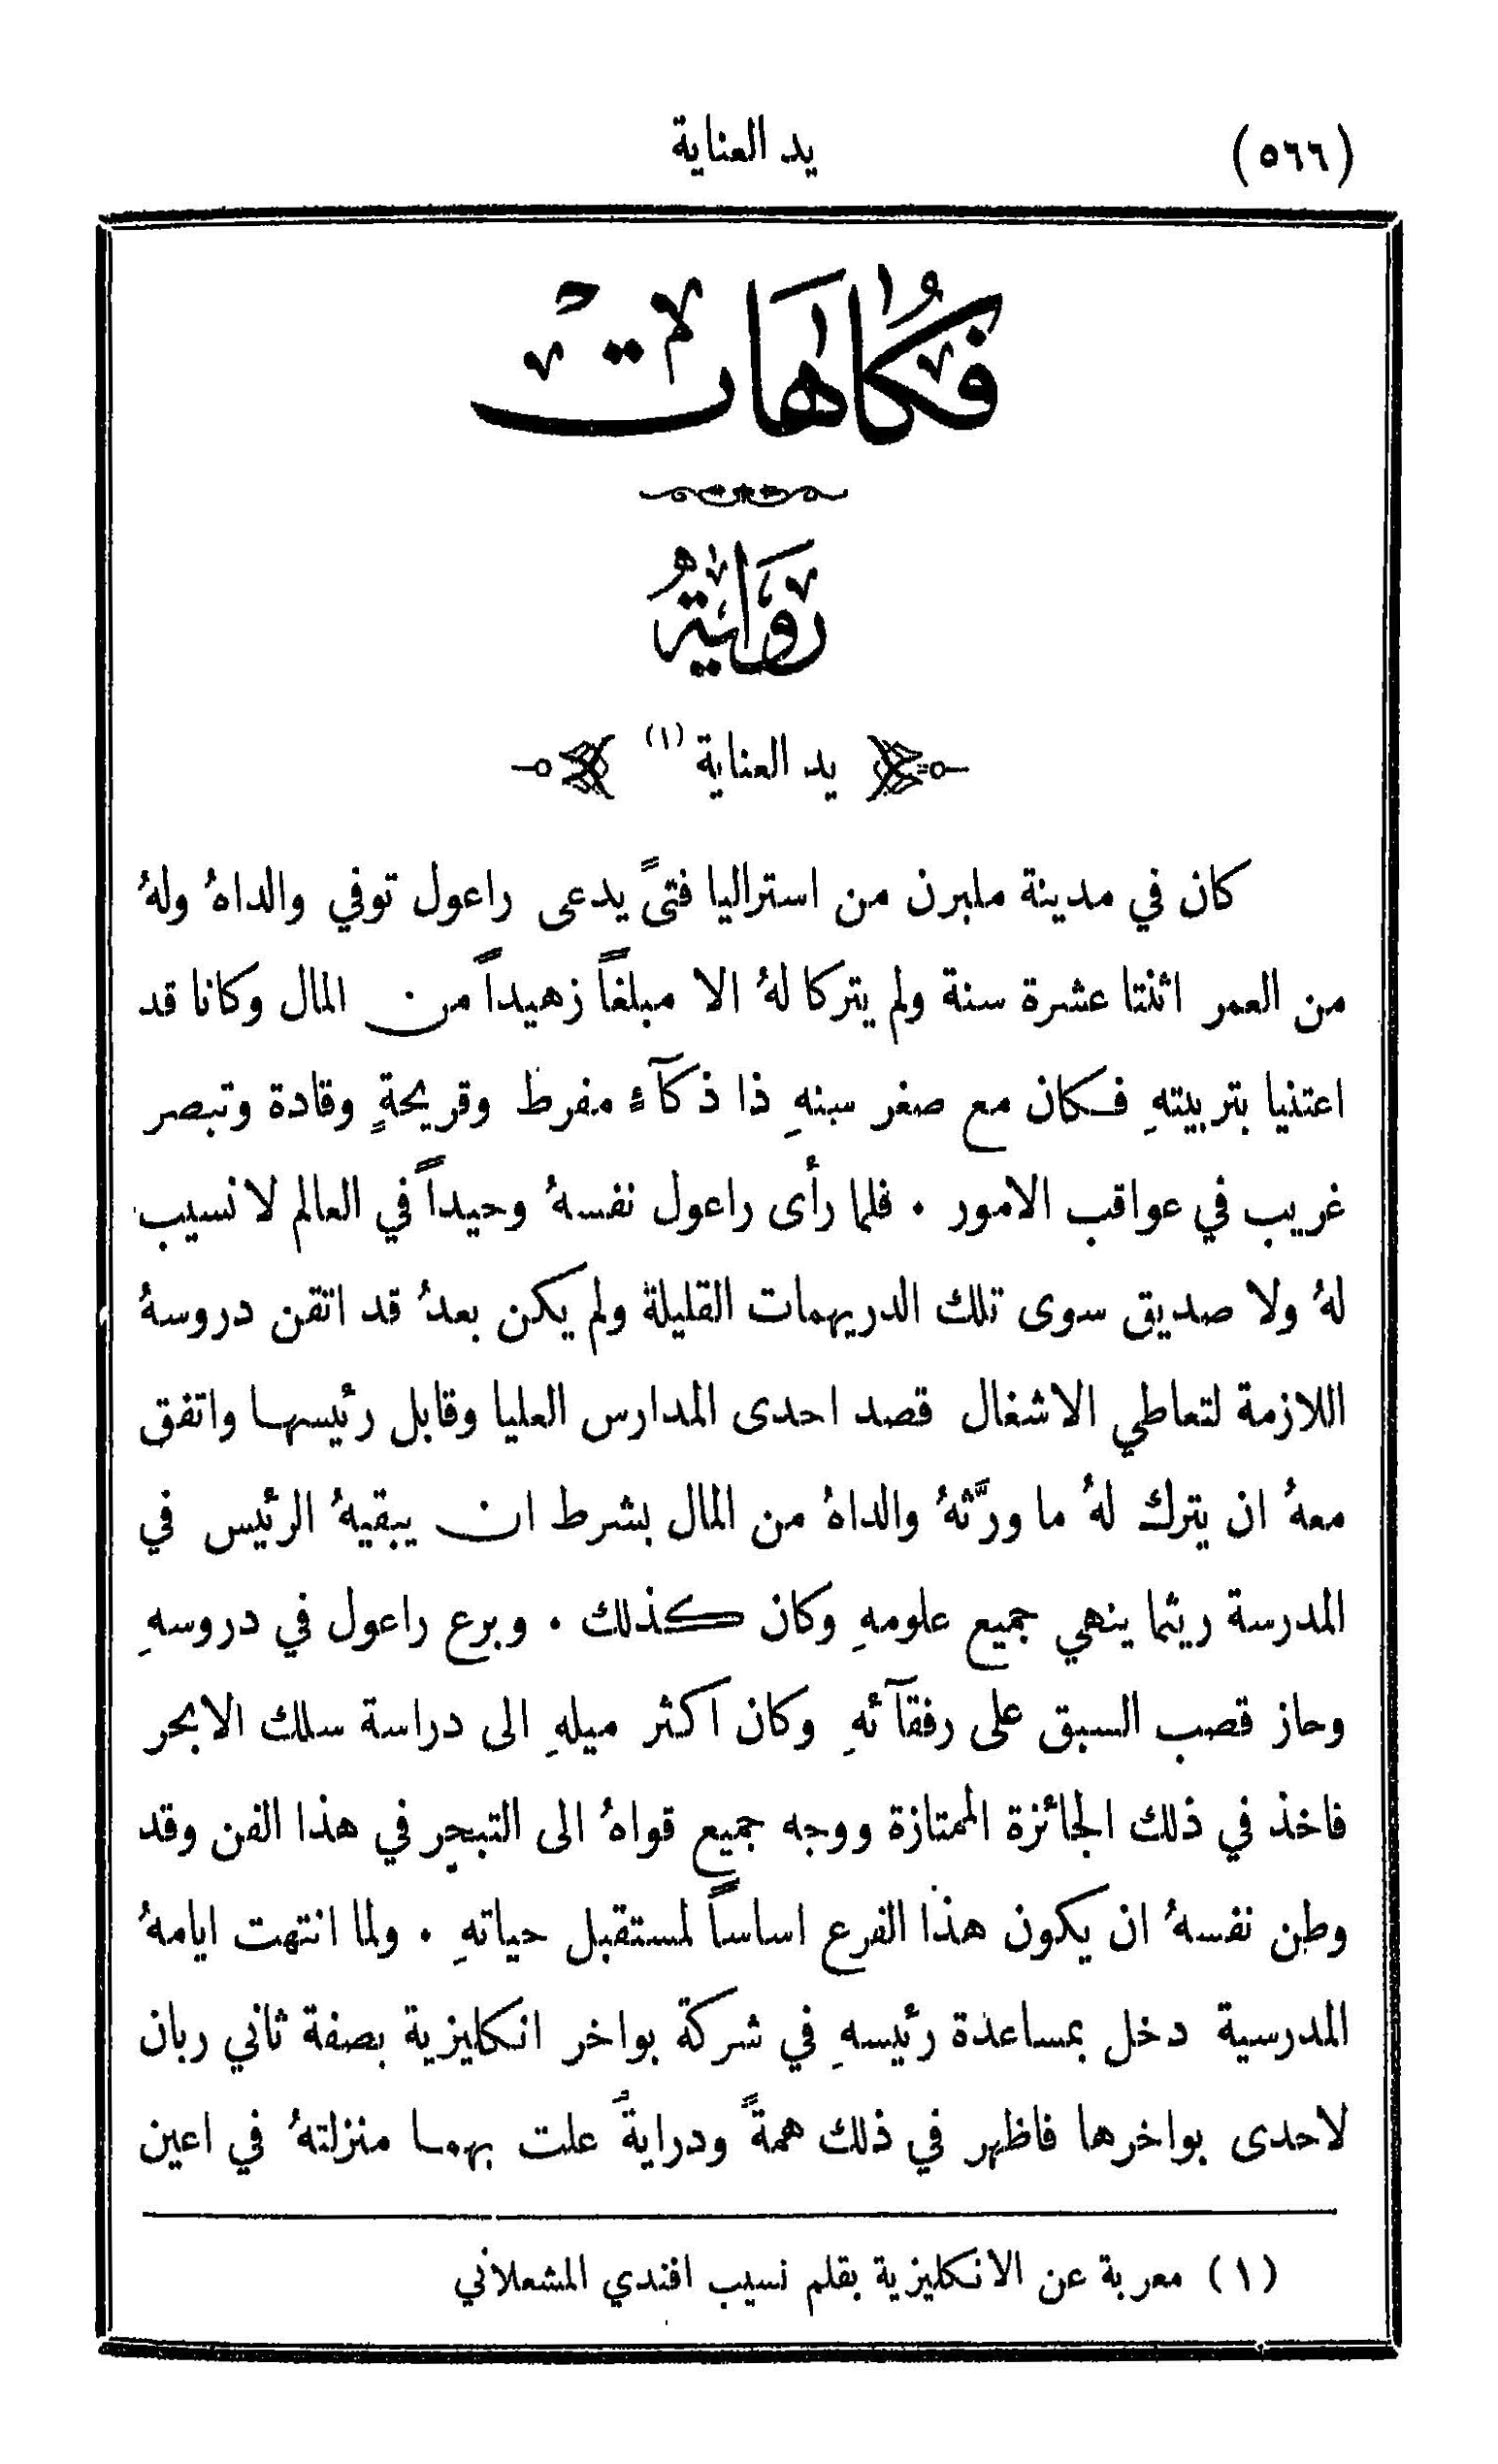 (٥٦٦)
يد العناية
فُكَاهَات
رِوَايَةُ
يد العناية (١)
كان في مدينة ملبرن من استراليا فتىً يدعى راعول توفي والداهُ ولهُ
من العمر اثنتا عشرة سنة ولم يتركا لهُ الا مبلغاً زهيداً من المال وكانا قد
اعتنيا بتربيتهِ فكان مع صغر سنهِ ذا ذكآءٍ مفرط وقريحةٍ وقادة وتبصر
غريب في عواقب الامور . فلما رأى راعول نفسهُ وحيداً في العالم لا نسيب
لهُ ولا صديق سوى تلك الدريهمات القليلة ولم يكن بعدُ قد اتقن دروسهُ
اللازمة لتعاطي الاشغال قصد احدى المدارس العليا وقابل رئيسها واتفق
معهُ ان يترك لهُ ما ورَّثهُ والداهُ من المال بشرط ان يبقيهُ الرئيس في
المدرسة ريثما ينهي جميع علومهِ وكان كذلك . وبرع راعول في دروسهِ
وحاز قصب السبق على رفقآئهِ وكان اكثر ميلهِ الى دراسة سلك الابحر
فاخذ في ذلك الجائزة الممتازة ووجه جميع قواهُ الى التبحر في هذا الفن وقد
وطن نفسهُ ان يكون هذا الفرع اساساً لمستقبل حياتهِ . ولما انتهت ايامهُ
المدرسية دخل بمساعدة رئيسهِ في شركة بواخر انكليزية بصفة ثاني ربان
لاحدى بواخرها فاظهر في ذلك همةً ودرايةً علت بهما منزلتهُ في اعين
(١) معربة عن الانكليزية بقلم نسيب افندي المشعلاني